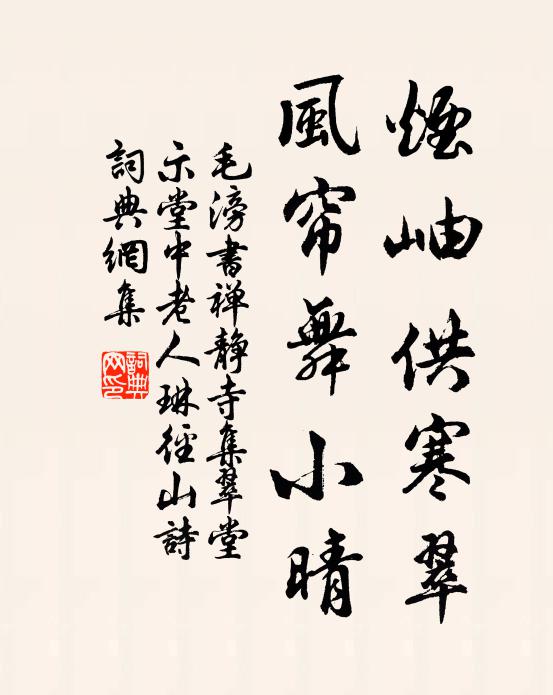 煙岫供寒翠
風帘舞小晴
毛滂書禅静寺集翠堂
示堂中老人琳徑山詩
詞典網集
詞典
网印